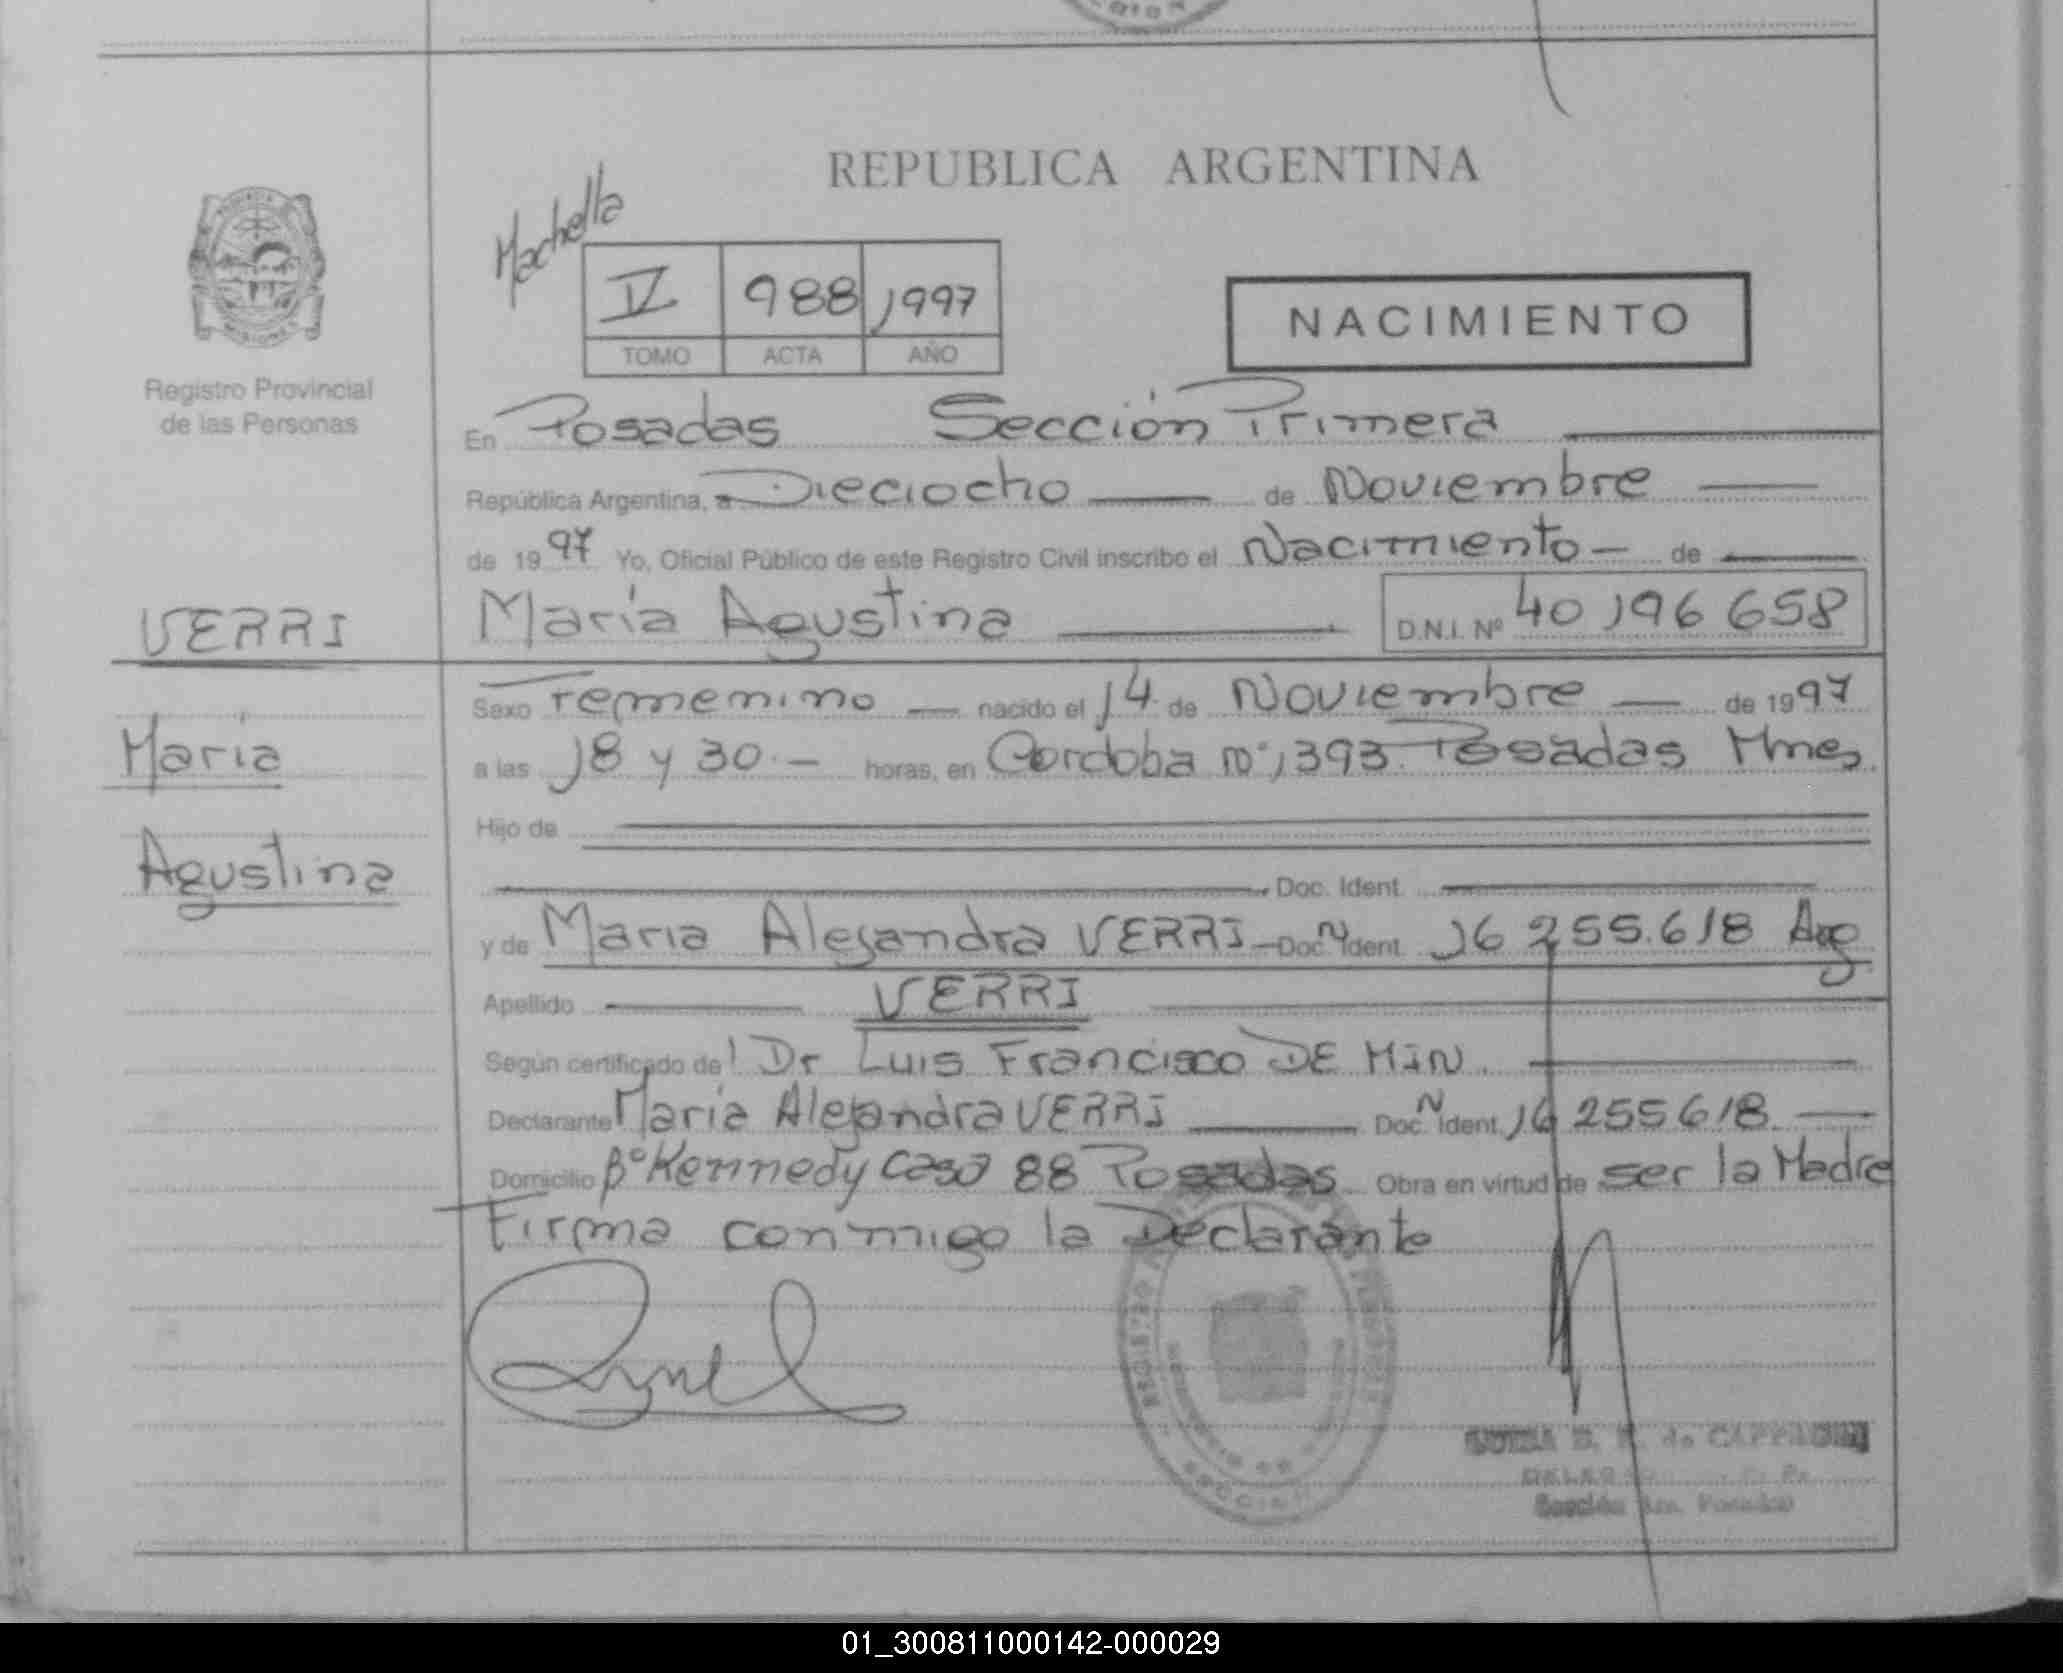 REPUBLICA ARGENTINA
Machella
IV 988 1997
TOMO ACTA AÑO
NACIMIENTO
Registro Provincial
de las Personas
En Posadas Sección Primera
República Argentina, a Dieciocho de Noviembre
de 1997 Yo, Oficial Público de este Registro Civil inscribo el Nacimiento - de
VERRI
María Agustina D.N.I. Nº 40 196 658
Sexo Femenino nacido el 14 de Noviembre de 1997
María
a las 18 y 30.- horas, en Cordoba nº 1393. Posadas Mnes.
Hijo de
Agustina
Doc. Ident.
y de Maria Alejandra VERRI - Doc. N Ident. 16 255.618 Arg
Apellido VERRI
Según certificado de: Dr Luis Francisco DE MIN.
Declarante María Alejandra VERRI Doc. N Ident. 16 255 618.
Domicilio Bº Kennedy Casa 88 Posadas Obra en virtud de ser la Madre
Firma conmigo la Declarante
Sección 1ra. Posadas
01_300811000142-000029